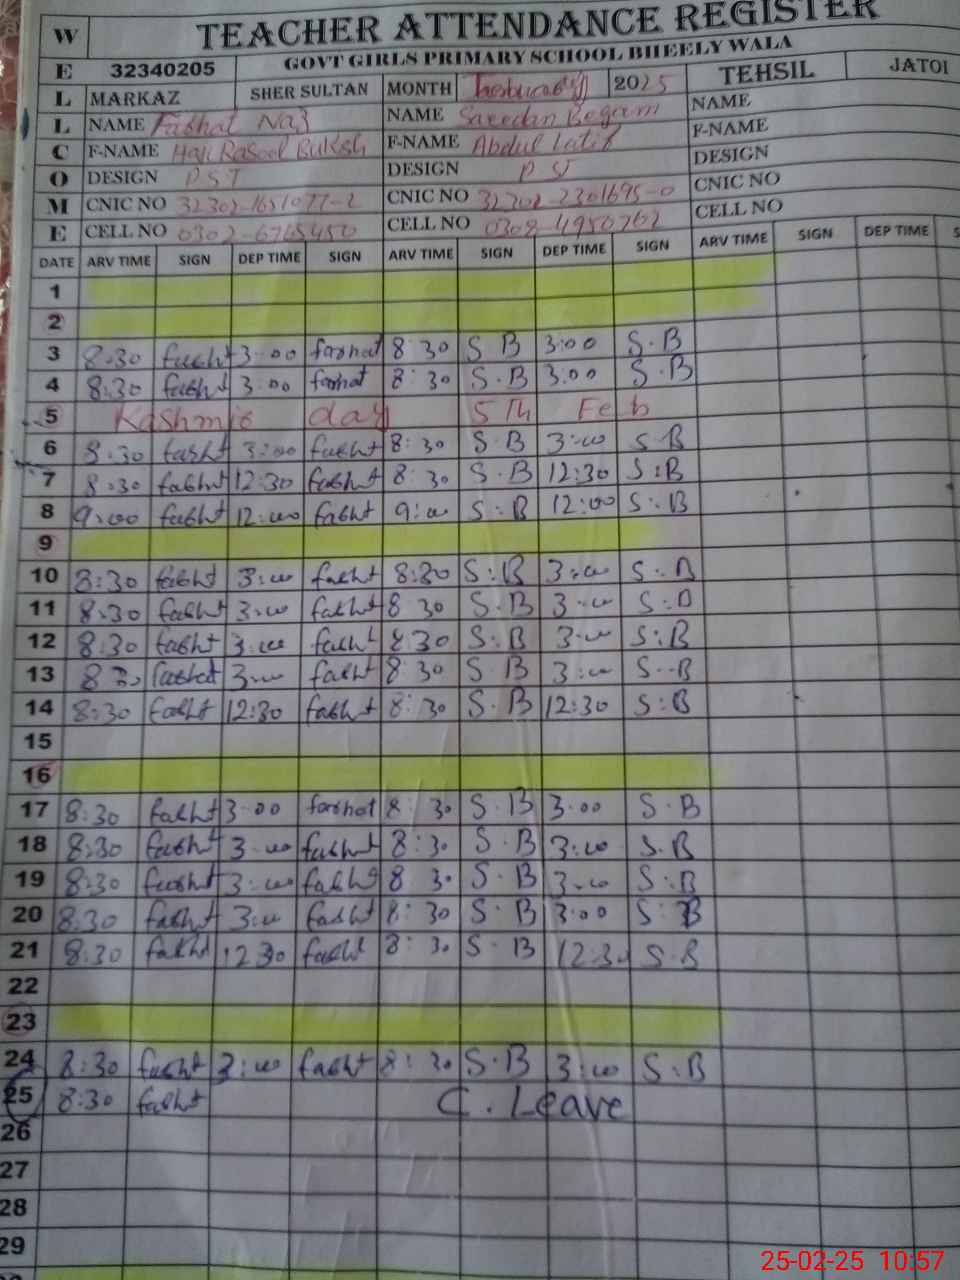 W TEACHER ATTENDANCE REGISTER
GOVT GIRLS PRIMARY SCHOOL BHEELY WALA
E 32340205 SHER SULTAN MONTH February 2025 TEHSIL JATOI
L MARKAZ
L NAME Farhat Naz NAME Saeedan Begam NAME
C F-NAME Haji Rasool Buksh F-NAME Abdul Latif F-NAME
O DESIGN PST DESIGN PST DESIGN
M CNIC NO 32302-1651077-2 CNIC NO 32302-2301695-0 CNIC NO
E CELL NO 0302-6765450 CELL NO 0308-4950762 CELL NO
DATE ARV TIME SIGN DEP TIME SIGN ARV TIME SIGN DEP TIME SIGN ARV TIME SIGN DEP TIME S
1
2
3 8:30 farht 3:00 farhat 8:30 S B 3:00 S.B
4 8:30 farht 3:00 farhat 8:30 S.B 3:00 S.B
5 Kashmir day 5th Feb
6 8:30 farht 3:00 farht 8:30 S B 3:00 S B
7 8:30 farht 12:30 farht 8:30 S.B 12:30 S:B
8 9:00 farht 12:00 farht 9:00 S:B 12:00 S:B
9
10 8:30 farht 3:00 farht 8:30 S:B 3:00 S:B
11 8:30 farht 3:00 farht 8 30 S.B 3:00 S:B
12 8:30 farht 3:00 farht 8:30 S:B 3:00 S:B
13 8 30 farhat 3:00 farht 8:30 S B 3:00 S--B
14 8:30 farht 12:30 farht 8:30 S.B 12:30 S:B
15
16
17 8:30 farht 3:00 farhat 8:30 S.B 3:00 S.B
18 8:30 farht 3:00 farht 8:30 S.B 3:00 S.B
19 8:30 farht 3:00 farht 8 30 S.B 3:00 S:B
20 8:30 farht 3:00 farht 8:30 S.B 3:00 S:B
21 8:30 farht 12 30 farht 8:30 S B 12:30 S.B
22
23
24 8:30 farht 3:00 farht 8:30 S.B 3:00 S.B
25 8:30 farht C. Leave
26
27
28
29
25-02-25 10:57